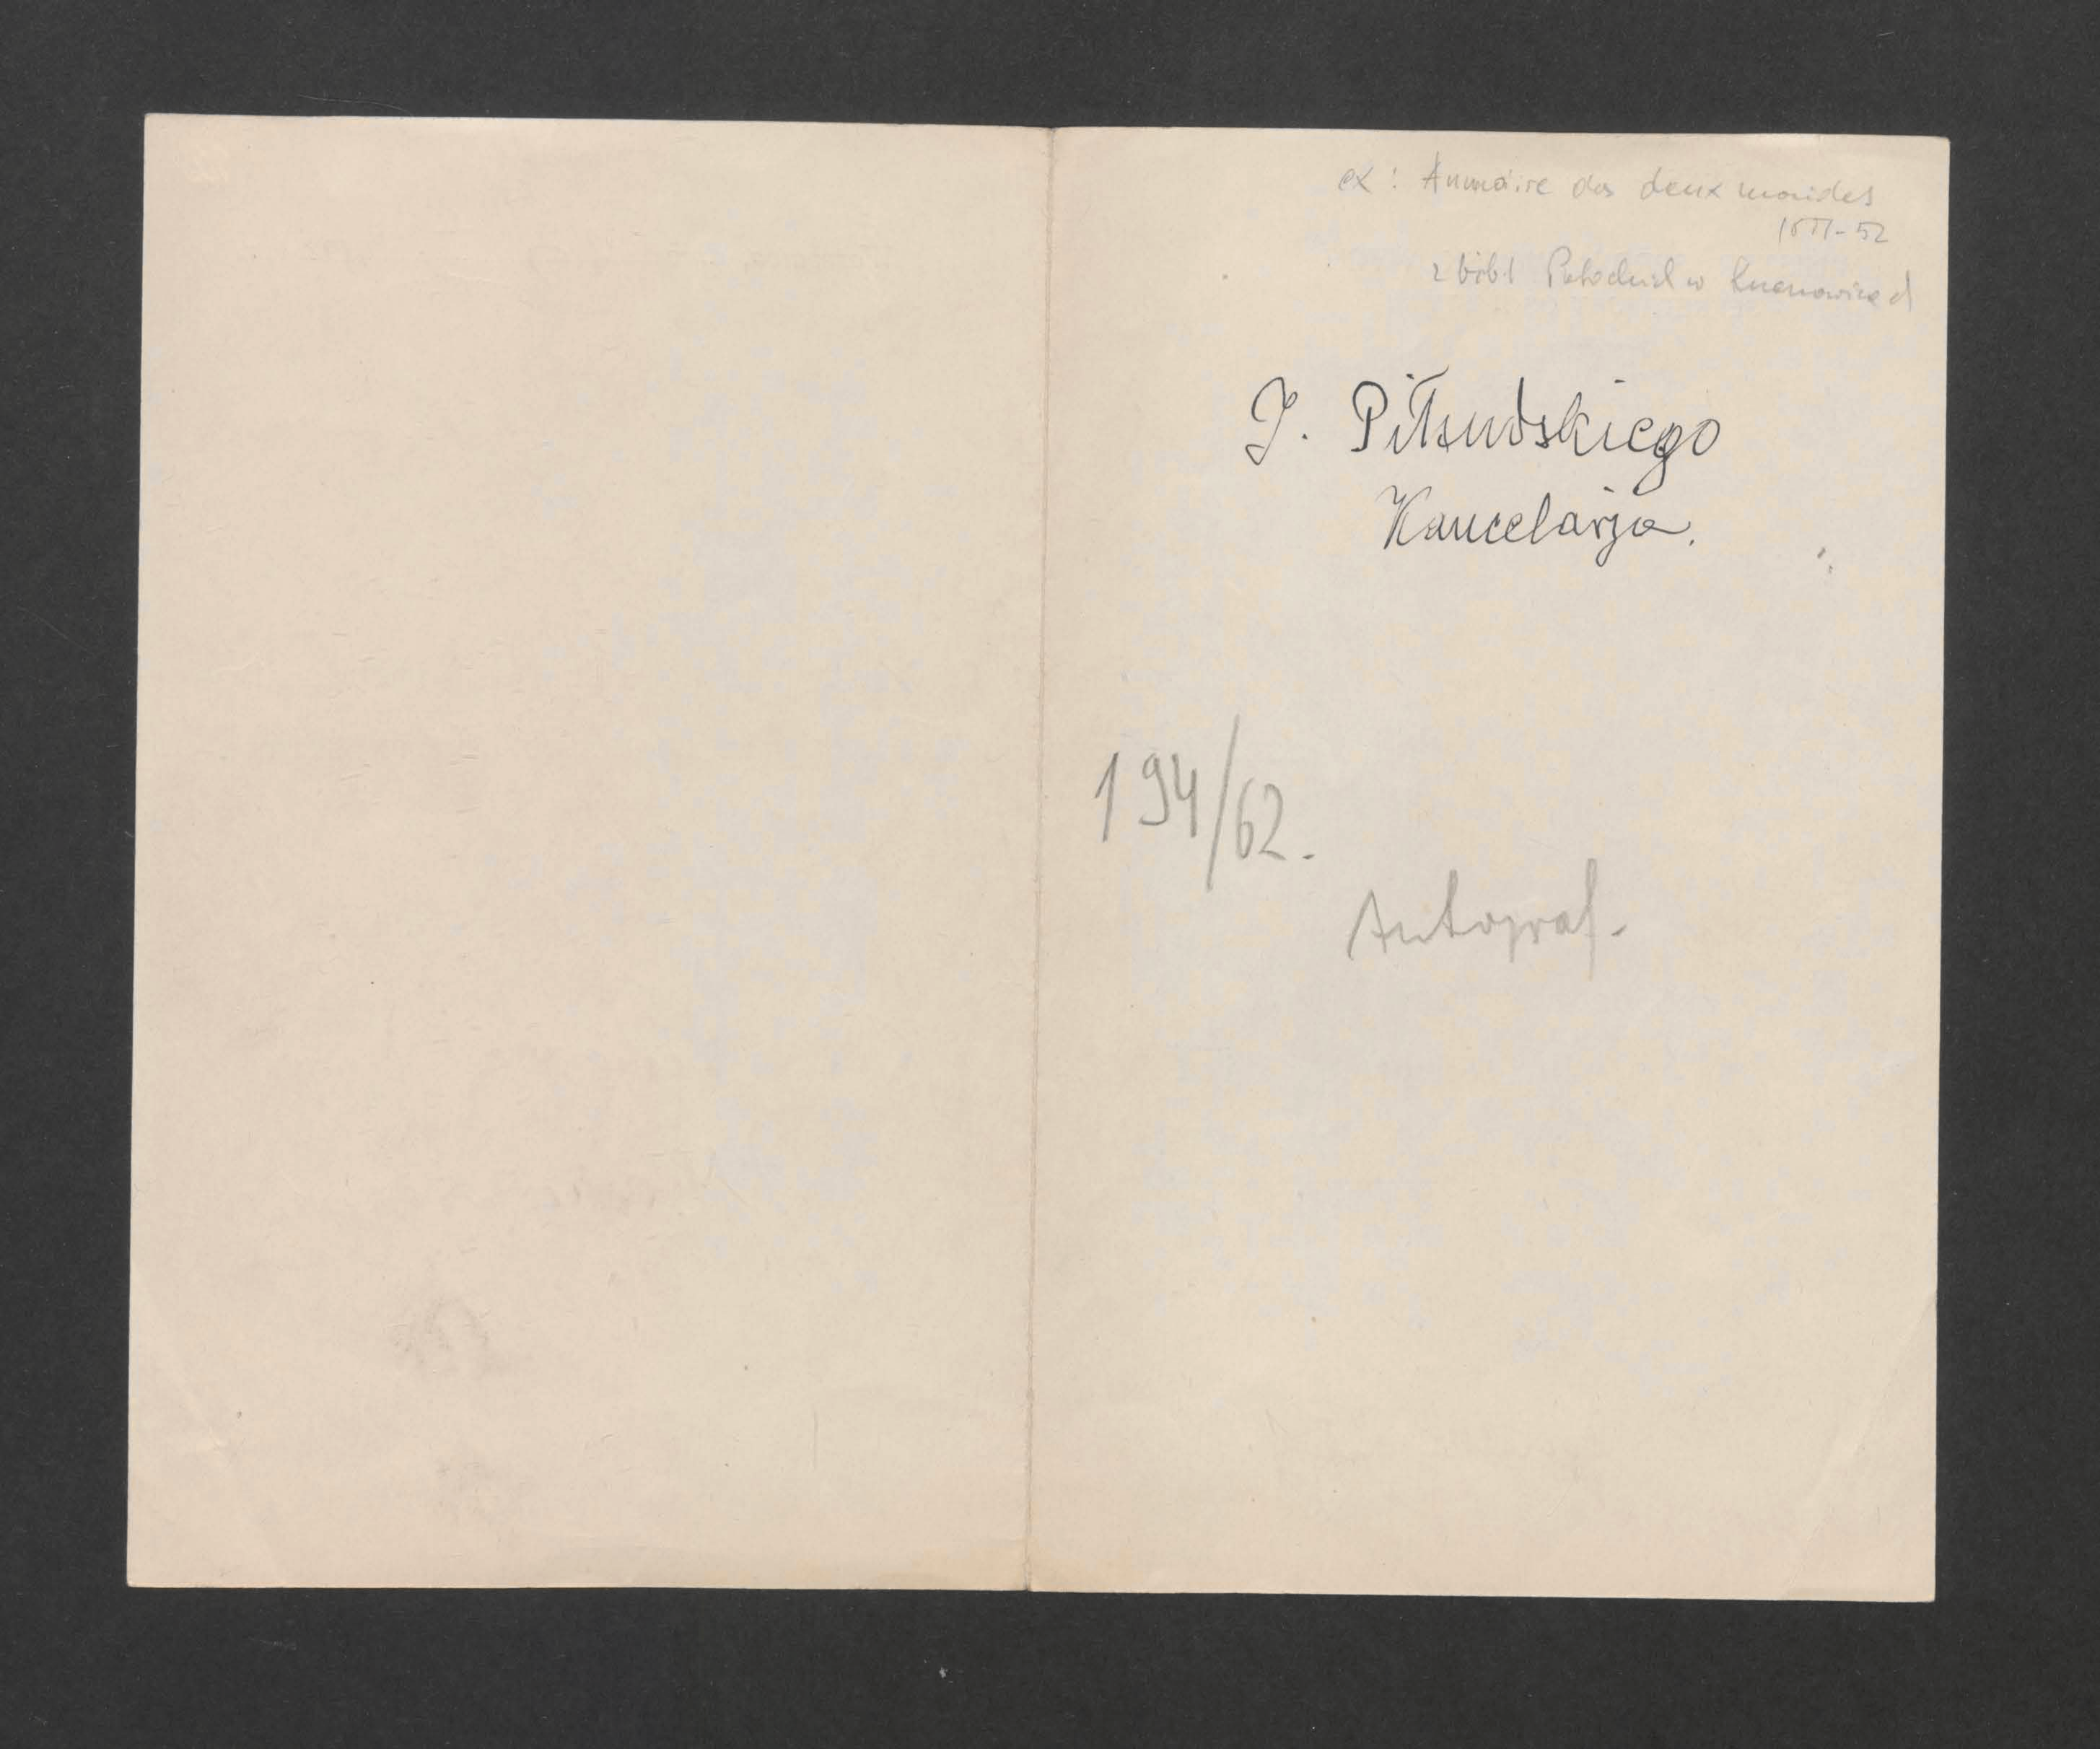 ex: Annuaire des deux mondes
1851-52
z bibl Potockich w
J. Piłsudskiego
Kancelarja.
194/62.
Autograf.